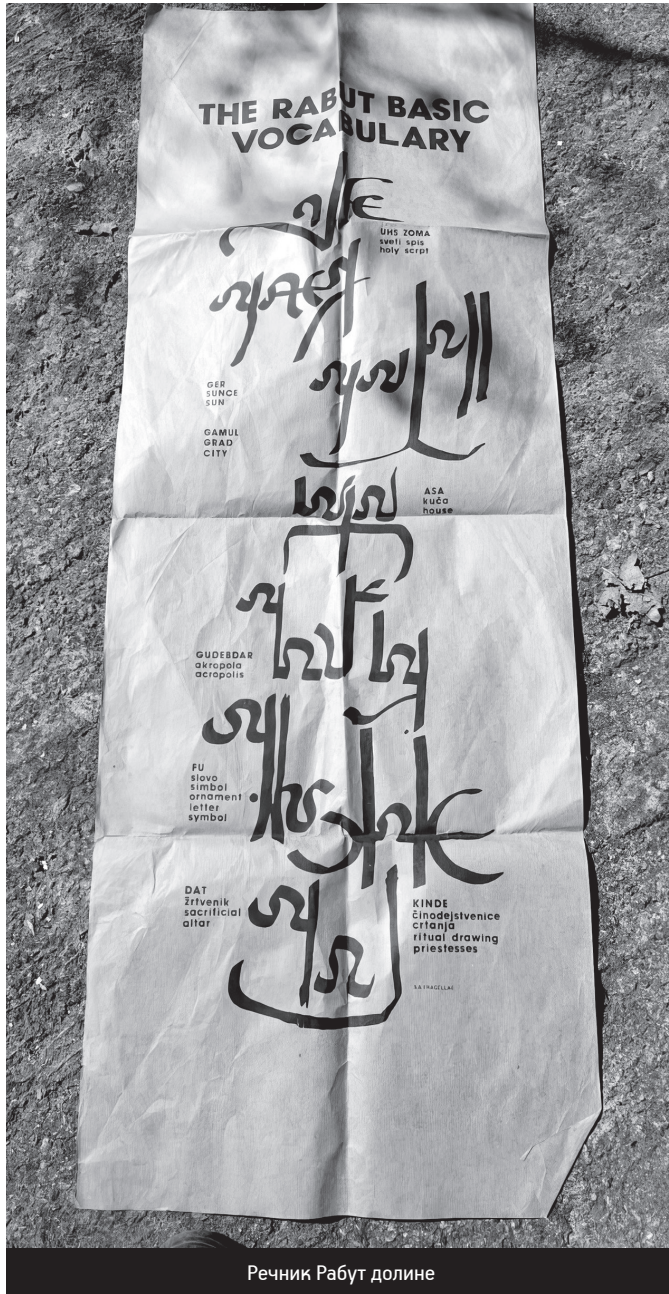 THE RABUT BASIC
VOCABULARY
UHS ZOMA
sveti spis
holy scrpt
GER
SUNCE
SUN
GAMUL
GRAD
CITY
ASA
kuća
house
GUDEBDAR
akropola
acropolis
FU
slovo
simbol
ornament
letter
symbol
DAT
žrtvenik
sacrificial
altar
KINDE
činodejstvenice
crtanja
ritual drawing
priestesses
Речник Рабут долине